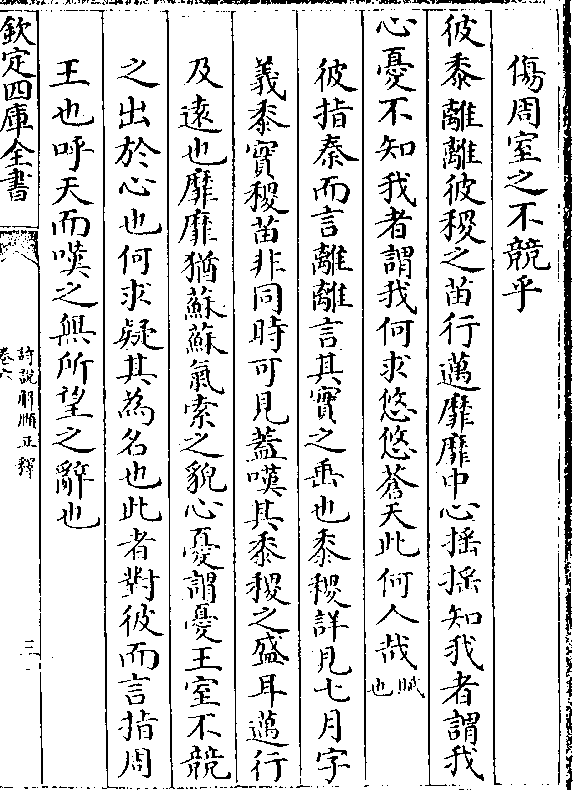 傷周室之不競乎
彼黍離離彼稷之苗行邁靡靡中心揺揺知我者謂我
心憂不知我者謂我何求悠悠蒼天此何人哉賦也
彼指秦而言離離言其實之垂也黍稷詳見七月字
義黍實稷苗非同時可見蓋嘆其黍稷之盛耳邁行
及遠也靡靡猶蘇蘇氣索之貌心憂謂憂王室不競
之出於心也何求疑其為名也此者對彼而言指周
王也呼天而嘆之無所望之辭也
欽定四庫全書
詩說解頤正釋
卷六
三